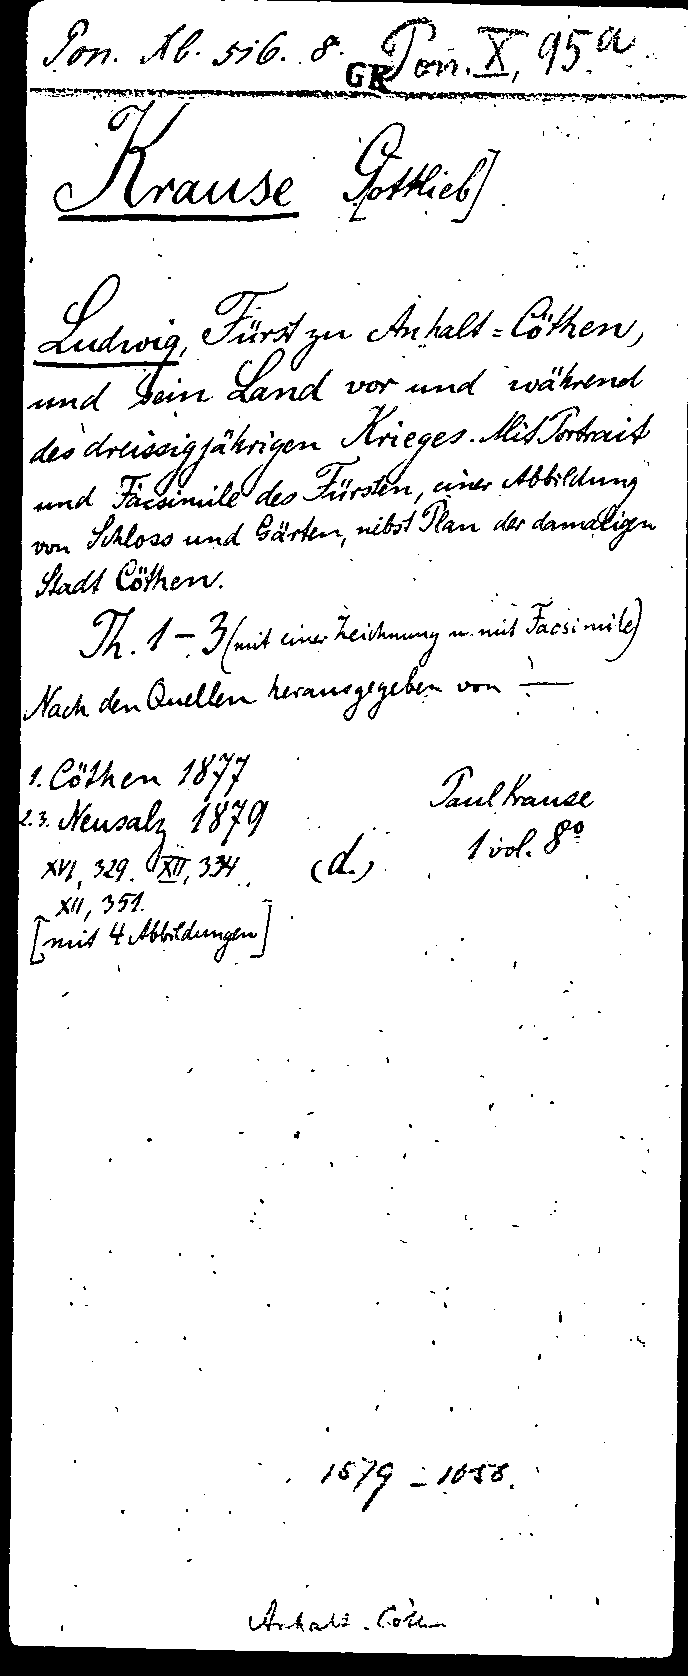 Pon. Xb. 516. 8. Pon. X, 95.a
GR
Krause G[ottlieb]
Ludwig, Fürst zu Anhalt=Cöthen,
und sein Land vor und während
des dreissigjährigen Krieges. Mit Portrait
und Facsimile des Fürsten, einer Abbildung
von Schloss und Gärten, nebst Plan der damaligen
Stadt Cöthen.
Th. 1–3 (mit einer Zeichnung u. mit Facsimile)
Nach den Quellen herausgegeben von —
1. Cöthen 1877
2.3. Neusalz 1879
Paul Krause
XVI, 329. XII, 334
XII, 351.
(d.) 1 vol. 8º
[mit 4 Abbildungen]
1579–1656.
Anhalt-Cöthen